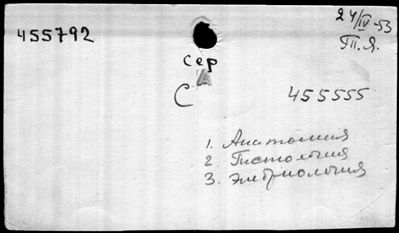 455792
24/IV-53
Тп. Я.
сер
С
455555
1. Анатомия
2. Гистология
3. Эмбриология